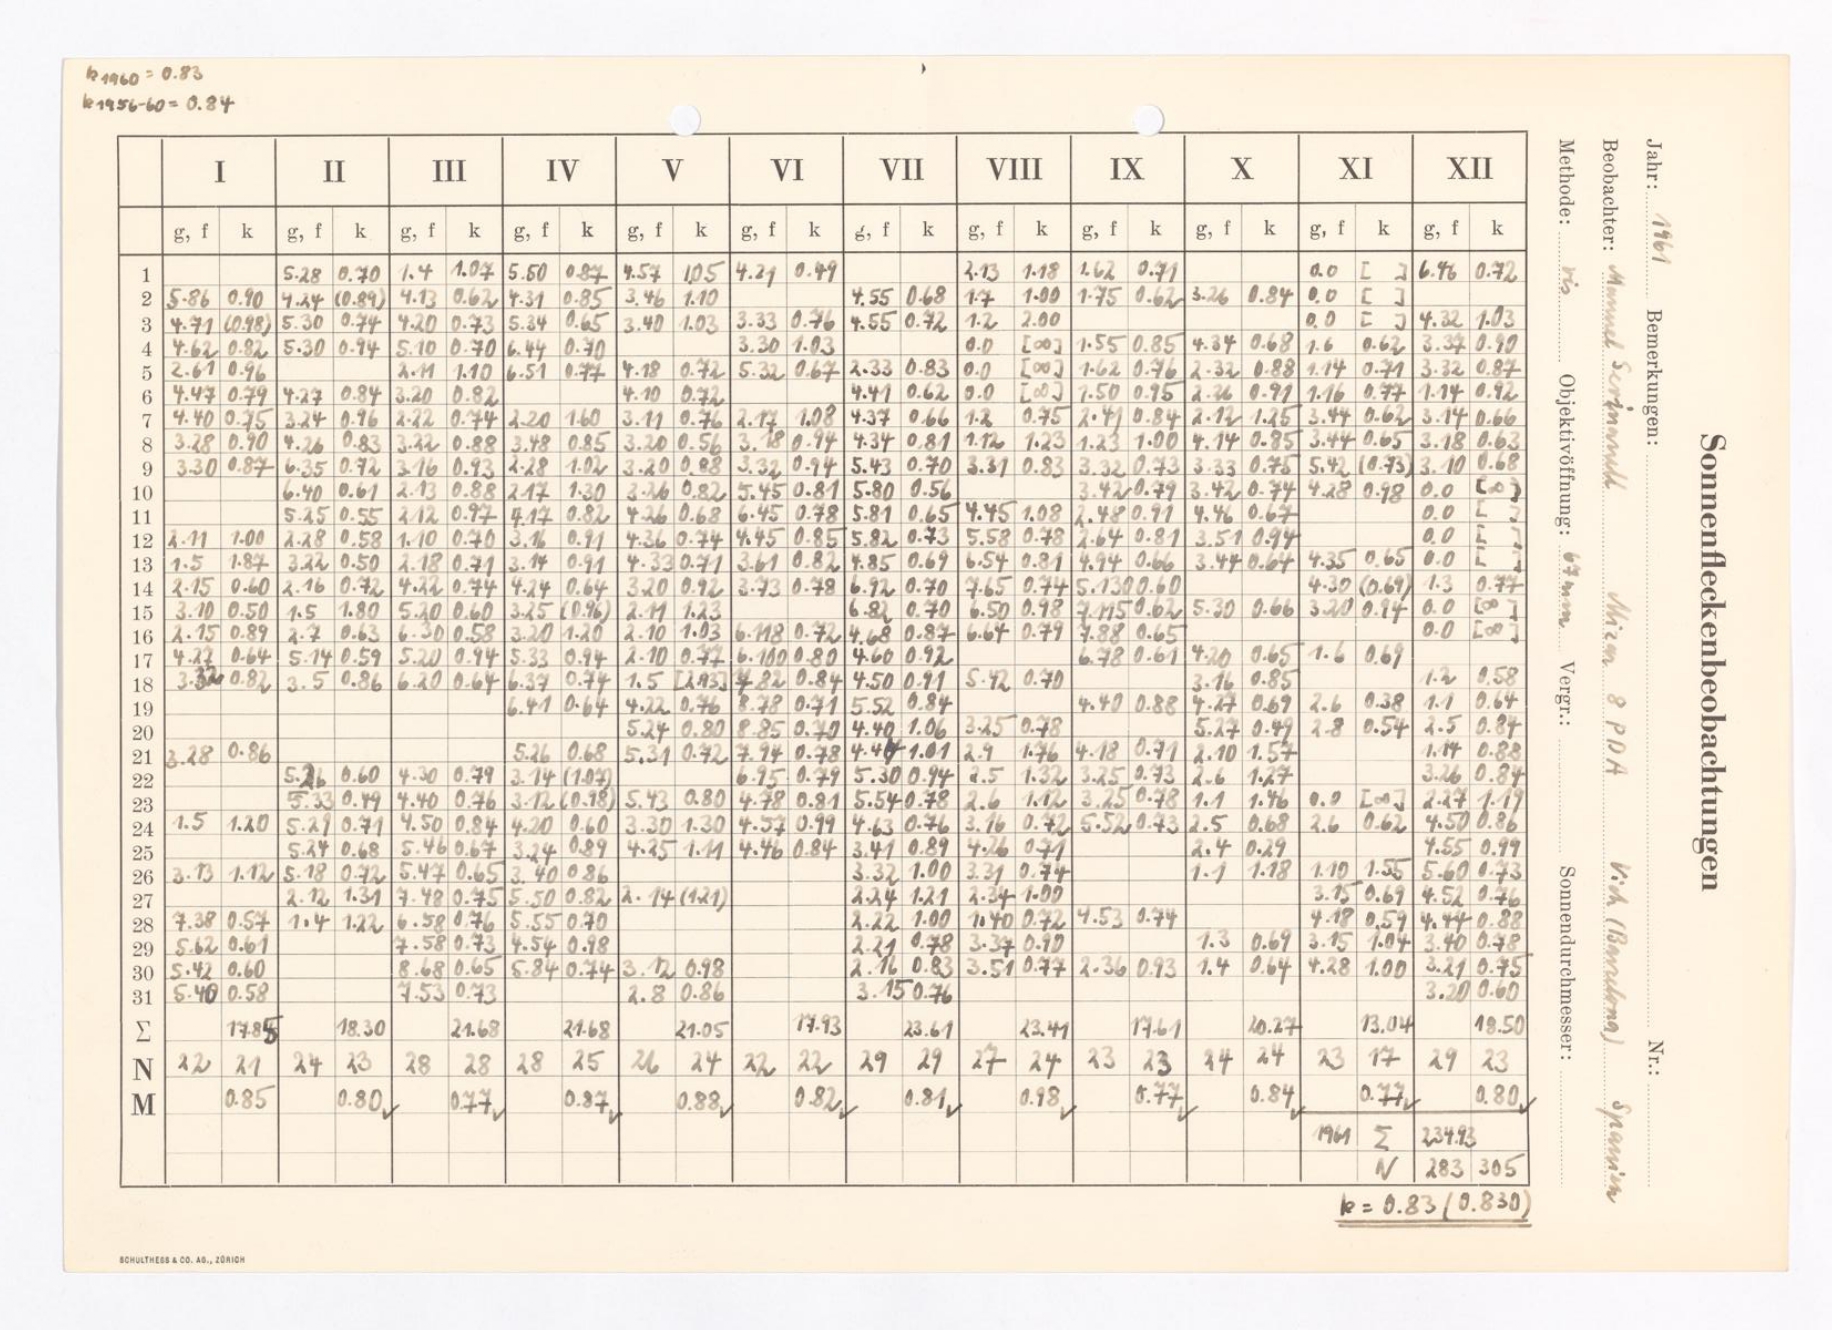 k1960 = 0.83
k1956-60 = 0.84
Sonnenfleckenbeobachtungen
Jahr: 1961 Bemerkungen: Nr.:
Beobachter: Manuel 8 PDA Vich (Barcelona) Spanien
Methode: vis Objektivöffnung: 67mm Vergr.: Sonnendurchmesser:
I II III IV V VI VII VIII IX X XI XII
g, f k g, f k g, f k g, f k g, f k g, f k g, f k g, f k g, f k g, f k g, f k g, f k
1 5.28 0.70 1.4 1.07 5.50 0.87 4.57 1.05 4.21 0.49 2.13 1.18 1.62 0.71 0.0 [ ] 6.46 0.72
2 5.86 0.90 4.24 (0.89) 4.13 0.62 4.31 0.85 3.46 1.10 4.55 0.68 1.7 1.00 1.75 0.62 3.26 0.84 0.0 [ ]
3 4.71 (0.98) 5.30 0.74 4.20 0.73 5.34 0.65 3.40 1.03 3.33 0.76 4.55 0.72 1.2 2.00 0.0 [ ] 4.32 1.03
4 4.62 0.82 5.30 0.94 5.10 0.70 6.44 0.70 3.30 1.03 0.0 [∞] 1.55 0.85 4.34 0.68 1.6 0.62 3.37 0.90
5 2.61 0.96 2.11 1.10 6.51 0.77 4.18 0.72 5.32 0.67 2.33 0.83 0.0 [∞] 1.62 0.76 2.32 0.88 1.14 0.71 3.32 0.87
6 4.47 0.79 4.27 0.84 3.20 0.82 4.10 0.72 4.41 0.62 0.0 [∞] 1.50 0.95 2.26 0.91 1.16 0.77 1.14 0.92
7 4.40 0.75 3.24 0.96 2.22 0.74 2.20 1.60 3.11 0.76 2.17 1.08 4.37 0.66 1.2 0.75 2.41 0.84 2.12 1.25 3.44 0.62 3.14 0.66
8 3.28 0.90 4.26 0.83 3.22 0.88 3.48 0.85 3.20 0.56 3.18 0.94 4.34 0.81 1.12 1.23 1.23 1.00 4.14 0.85 3.44 0.65 3.18 0.63
9 3.30 0.87 6.35 0.72 3.16 0.93 2.28 1.02 3.20 0.88 3.32 0.94 5.43 0.70 3.31 0.83 3.32 0.73 3.33 0.75 5.42 (0.73) 3.10 0.68
10 6.40 0.61 2.13 0.88 2.17 1.30 3.26 0.82 5.45 0.81 5.80 0.56 3.42 0.79 3.42 0.74 4.28 0.98 0.0 [∞]
11 5.25 0.55 2.12 0.97 4.17 0.82 4.26 0.68 6.45 0.78 5.81 0.65 4.45 1.08 2.48 0.91 4.46 0.67 0.0 [ ]
12 2.11 1.00 2.28 0.58 1.10 0.70 3.16 0.91 4.36 0.74 4.45 0.85 5.82 0.73 5.58 0.78 2.64 0.81 3.51 0.94 0.0 [ ]
13 1.5 1.87 3.22 0.50 2.18 0.71 3.14 0.91 4.33 0.71 3.61 0.82 4.85 0.69 6.54 0.81 4.94 0.66 3.44 0.64 4.35 0.65 0.0 [ ]
14 2.15 0.60 2.16 0.72 4.22 0.74 4.24 0.64 3.20 0.92 3.73 0.78 6.92 0.70 7.65 0.74 5.130 0.60 4.30 (0.69) 1.3 0.77
15 3.10 0.50 1.5 1.80 5.20 0.60 3.25 (0.96) 2.11 1.23 6.82 0.70 6.50 0.98 7.115 0.62 5.30 0.66 3.20 0.94 0.0 [∞]
16 2.15 0.89 2.7 0.63 6.30 0.58 3.20 1.20 2.10 1.03 6.118 0.72 4.68 0.87 6.64 0.79 7.88 0.65 0.0 [∞]
17 4.27 0.64 5.14 0.59 5.20 0.94 5.33 0.94 2.10 0.77 6.100 0.80 4.60 0.92 6.78 0.61 4.20 0.65 1.6 0.69
18 3.32 0.82 3.5 0.86 6.20 0.64 6.37 0.74 1.5 [2.13] 7.82 0.84 4.50 0.91 5.42 0.70 3.16 0.85 1.2 0.58
19 6.41 0.64 4.22 0.76 8.78 0.71 5.52 0.84 4.40 0.88 4.27 0.69 2.6 0.38 1.1 0.64
20 5.24 0.80 8.85 0.70 4.40 1.06 3.25 0.78 5.27 0.49 2.8 0.54 2.5 0.84
21 3.28 0.86 5.26 0.68 5.31 0.72 7.94 0.78 4.44 1.01 2.9 1.76 4.18 0.71 2.10 1.57 1.14 0.88
22 5.26 0.60 4.30 0.79 3.14 (1.07) 6.95 0.79 5.30 0.94 2.5 1.32 3.25 0.73 2.6 1.27 3.26 0.84
23 5.33 0.49 4.40 0.76 3.12 (0.98) 5.43 0.80 4.78 0.81 5.54 0.78 2.6 1.12 3.25 0.78 1.1 1.46 0.0 [∞] 2.27 1.19
24 1.5 1.20 5.29 0.71 4.50 0.84 4.20 0.60 3.30 1.30 4.57 0.99 4.63 0.76 3.16 0.72 5.52 0.73 2.5 0.68 2.6 0.62 4.50 0.86
25 5.24 0.68 5.46 0.67 3.24 0.89 4.25 1.11 4.46 0.84 3.41 0.89 4.26 0.71 2.4 0.29 4.55 0.99
26 3.13 1.12 5.18 0.72 5.47 0.65 3.40 0.86 3.32 1.00 3.31 0.74 1.1 1.18 1.10 1.55 5.60 0.73
27 2.12 1.31 7.48 0.75 5.50 0.82 2.14 (1.21) 2.24 1.21 2.34 1.00 3.15 0.69 4.52 0.76
28 7.38 0.57 1.4 1.22 6.58 0.76 5.55 0.70 2.22 1.00 1.40 0.72 4.53 0.74 4.18 0.59 4.44 0.88
29 5.62 0.61 7.58 0.73 4.54 0.98 2.21 0.78 3.37 0.90 1.3 0.69 3.15 1.04 3.40 0.78
30 5.42 0.60 8.68 0.65 5.84 0.74 3.12 0.98 2.16 0.83 3.51 0.77 2.36 0.93 1.4 0.64 4.28 1.00 3.21 0.75
31 5.40 0.58 7.53 0.73 2.8 0.86 3.15 0.76 3.20 0.60
Σ 17.85 18.30 21.68 21.68 21.05 17.93 23.61 23.41 17.61 20.27 13.04 18.50
N 22 21 24 23 28 28 28 25 26 24 22 22 29 29 27 24 23 23 24 24 23 17 29 23
M 0.85 0.80 0.77 0.87 0.88 0.82 0.81 0.98 0.77 0.84 0.77 0.80
1961 Σ 234.93
N 283 305
k = 0.83 (0.830)
SCHULTHESS & CO. AG., ZÜRICH